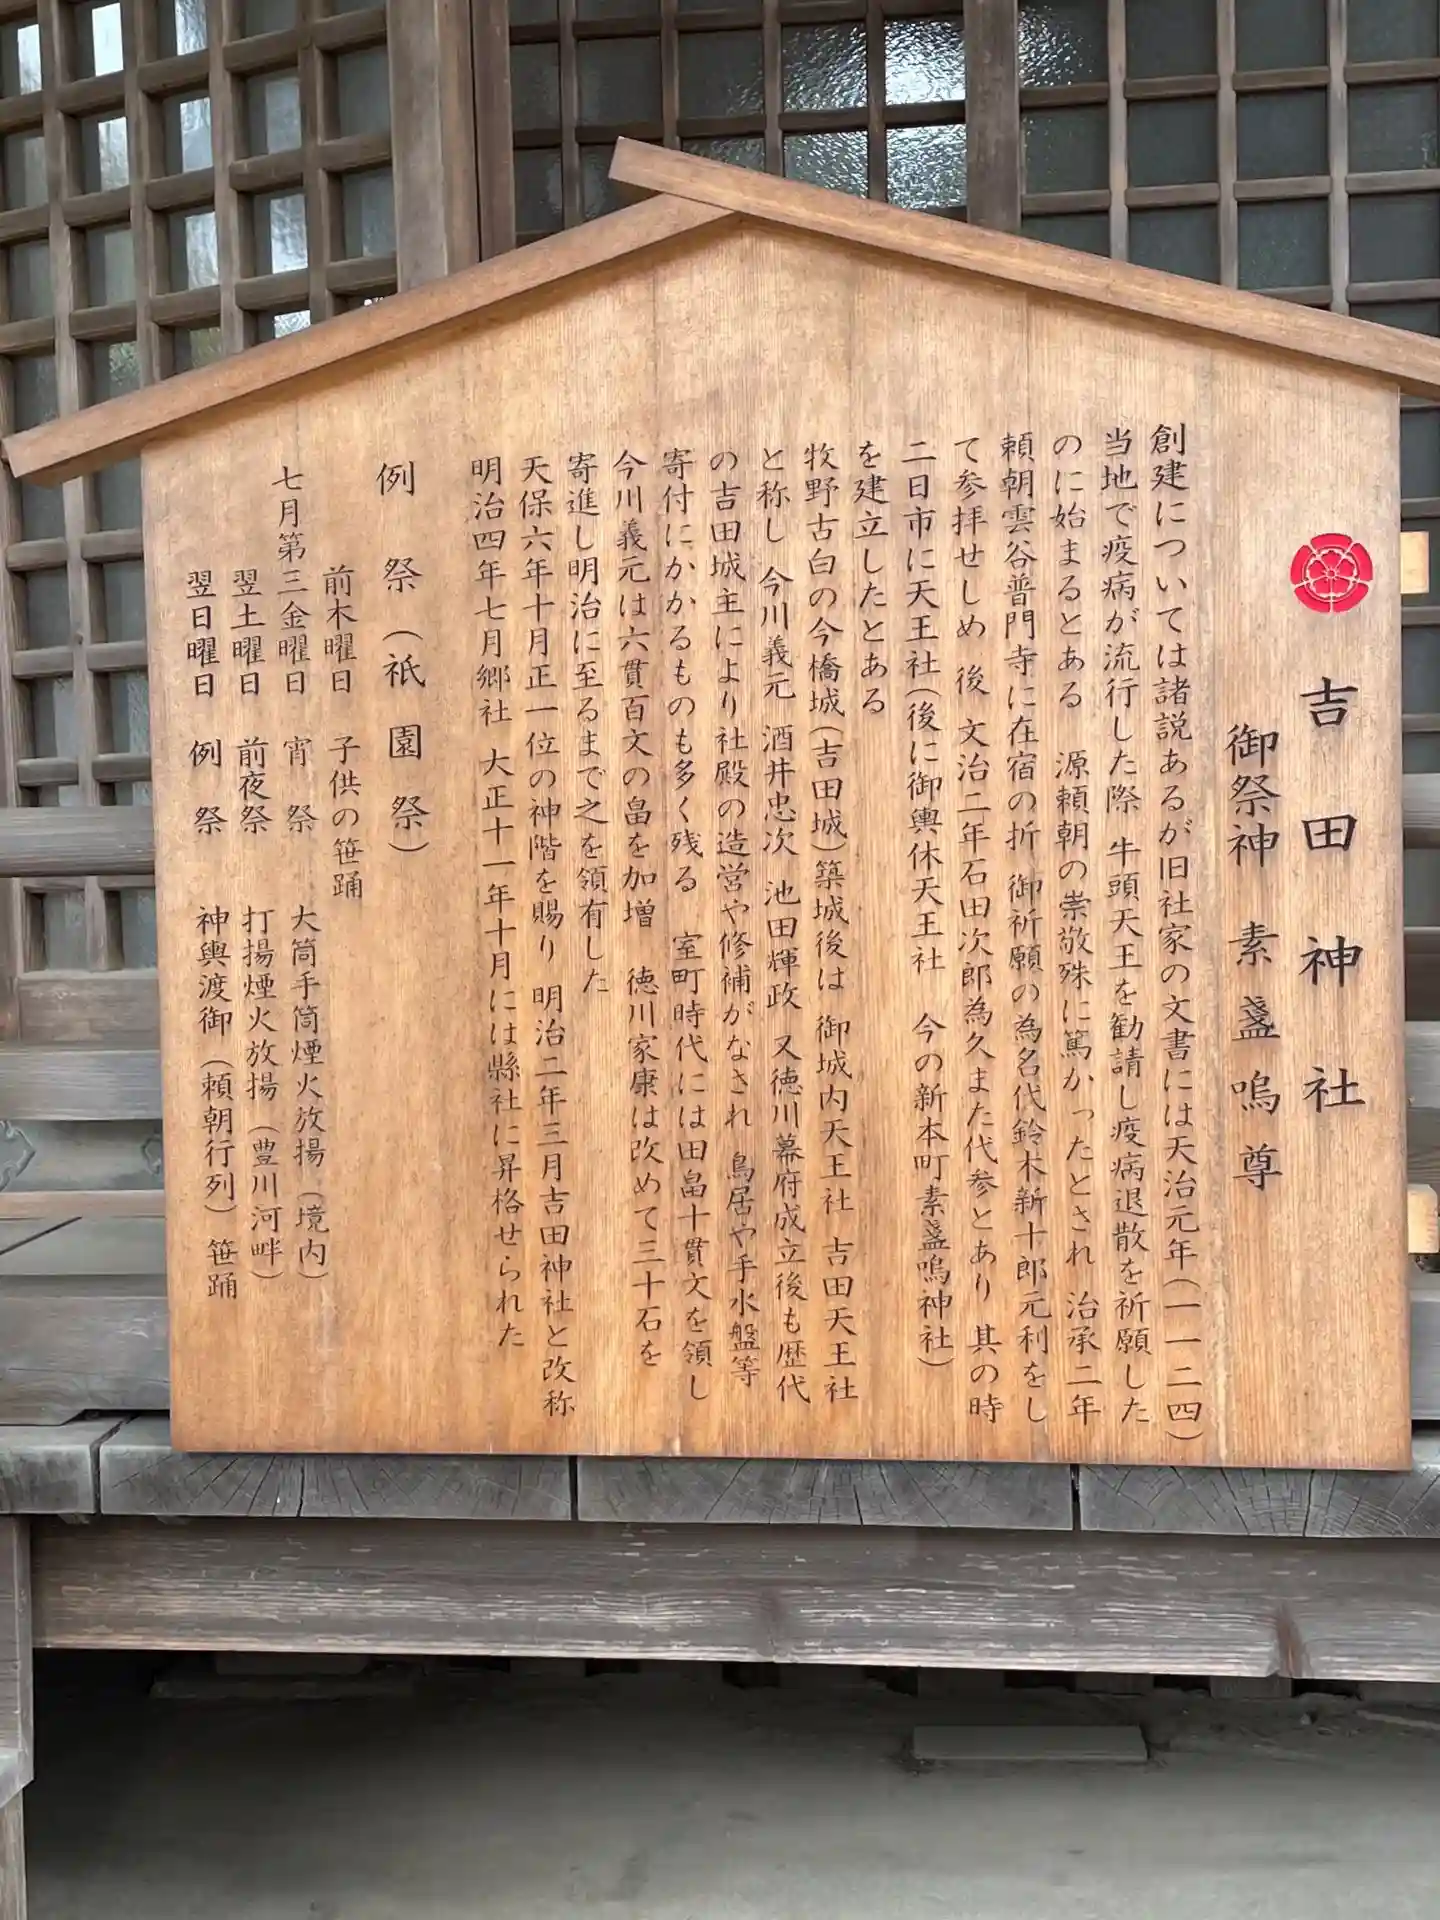 吉田神社
御祭神 素盞嗚尊
創建については諸説あるが旧社家の文書には天治元年(一一二四)
当地で疫病が流行した際 牛頭天王を勧請し疫病退散を祈願した
のに始まるとある 源頼朝の崇敬殊に篤かったとされ 治承二年
頼朝雲谷普門寺に在宿の折 御祈願の為名代鈴木新十郎元利をし
て参拝せしめ 後 文治二年石田次郎為久また代参とあり 其の時
二日市に天王社(後に御輿休天王社 今の新本町素盞嗚神社)
を建立したとある
牧野古白の今橋城(吉田城)築城後は 御城内天王社 吉田天王社
と称し 今川義元 酒井忠次 池田輝政 又徳川幕府成立後も歴代
の吉田城主により社殿の造営や修補がなされ 鳥居や手水盤等
寄付にかかるものも多く残る 室町時代には田畠十貫文を領し
今川義元は六貫百文の畠を加増 徳川家康は改めて三十石を
寄進し明治に至るまで之を領有した
天保六年十月正一位の神階を賜り 明治二年三月吉田神社と改称
明治四年七月郷社 大正十一年十月には縣社に昇格せられた
例祭(祇園祭)
前木曜日 子供の笹踊
七月第三金曜日 宵祭 大筒手筒煙火放揚(境内)
翌土曜日 前夜祭 打揚煙火放揚(豊川河畔)
翌日曜日 例祭 神輿渡御(頼朝行列)笹踊